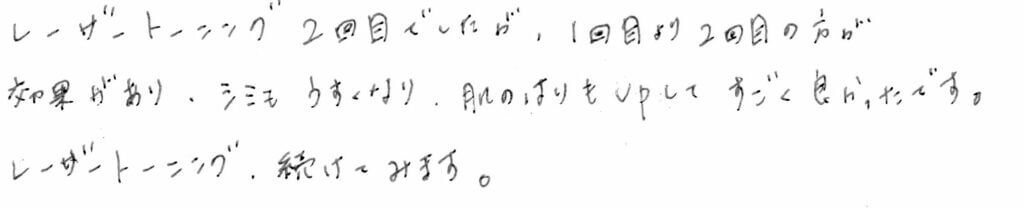 レーザートーニング2回目でしたが、1回目より2回目の方が
効果があり、シミもうすくなり、肌のはりもupしてすごく良かったです。
レーザートーニング、続けてみます。